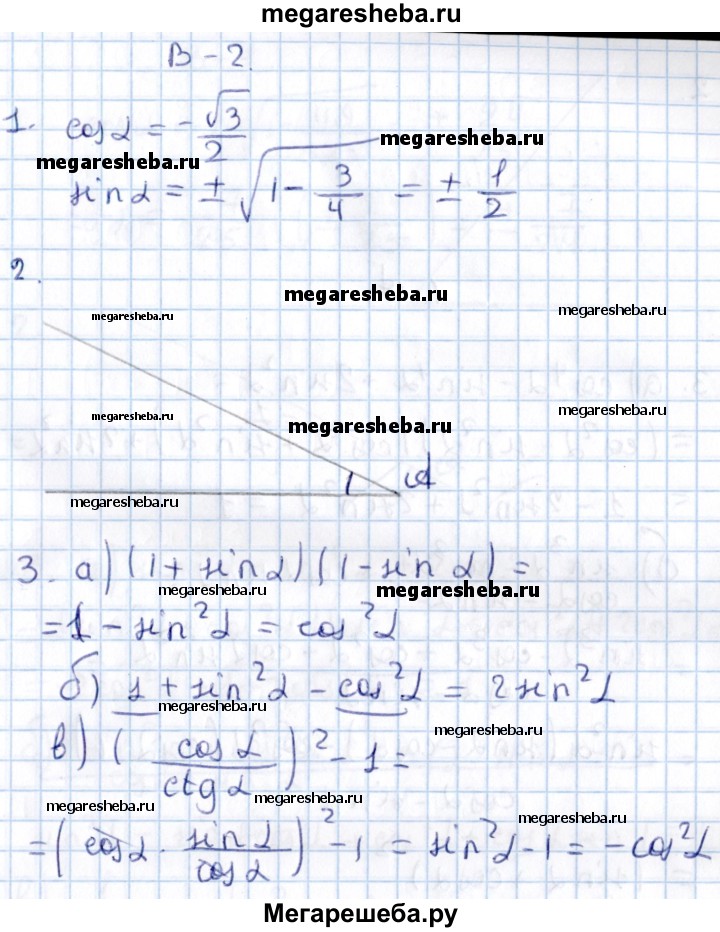 megaresheba.ru
В - 2.
1. cos α = - √3/2
megaresheba.ru
megaresheba.ru
sin α = ± √(1 - 3/4) = ± 1/2
2.
megaresheba.ru
megaresheba.ru
megaresheba.ru
megaresheba.ru
megaresheba.ru
megaresheba.ru
A
megaresheba.ru
3. а) (1 + sin α) (1 - sin α) =
megaresheba.ru
= 1 - sin² α = cos² α
б) 1 + sin² α - cos² α = 2 sin² α
megaresheba.ru
megaresheba.ru
в) ( cos α / ctg α )² - 1 =
megaresheba.ru
megaresheba.ru
megaresheba.ru
= ( cos α · sin α / cos α )² - 1 = sin² α - 1 = - cos² α
Мегарешеба.ру